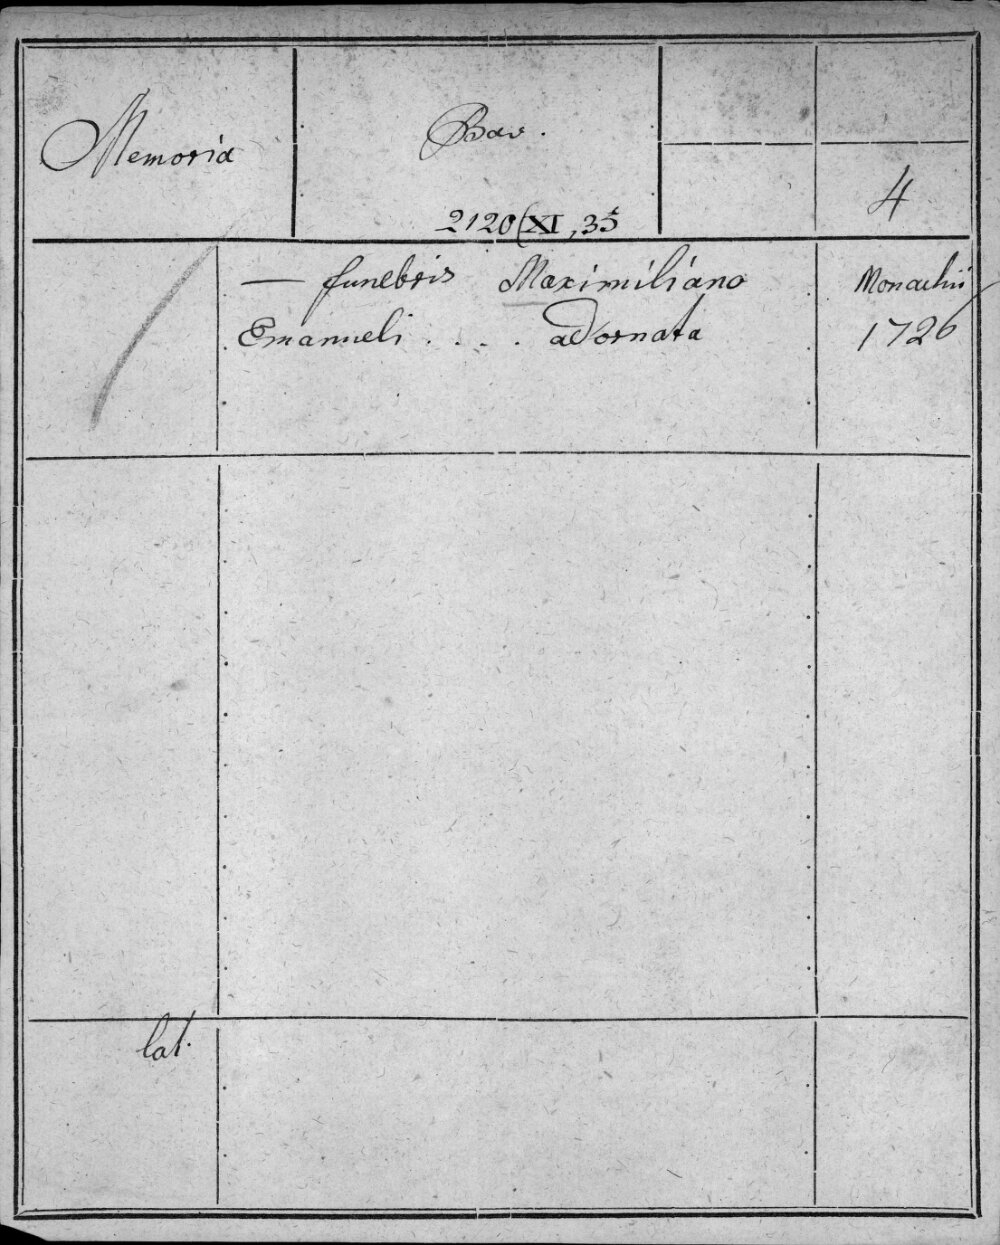 Memoria
Bav.
2120(XI,35
4
— funebris Maximiliano
Emanueli . . . . adornata
Monachii
1726
lat.